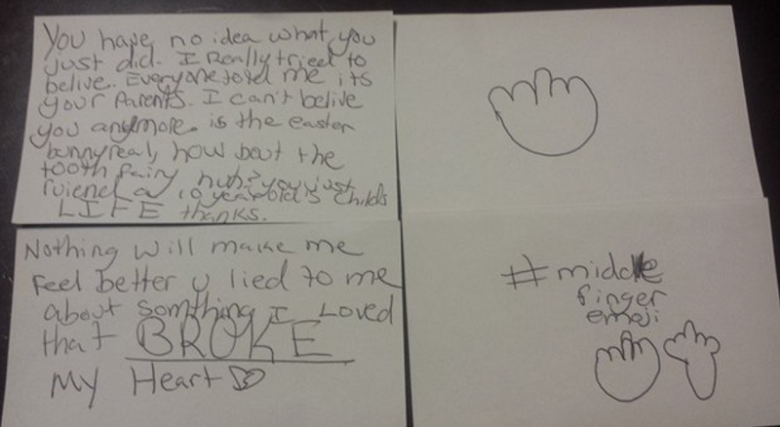 You have no idea what you
just did. I Really tried to
belive. Everyone told me its
your Parents. I can't belive
you anymore. is the easter
bunny real, how bout the
tooth fairy huh? you just
ruiend a 10 year old's childs
LIFE thanks.
Nothing will make me
feel better u lied to me
about somthing I Loved
that BROKE
My Heart
#middle
finger
emoji